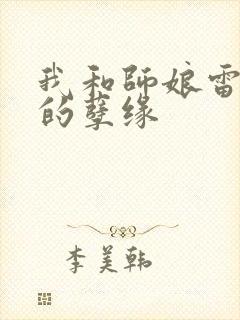 我和師娘雷
的孽缘
李美韩